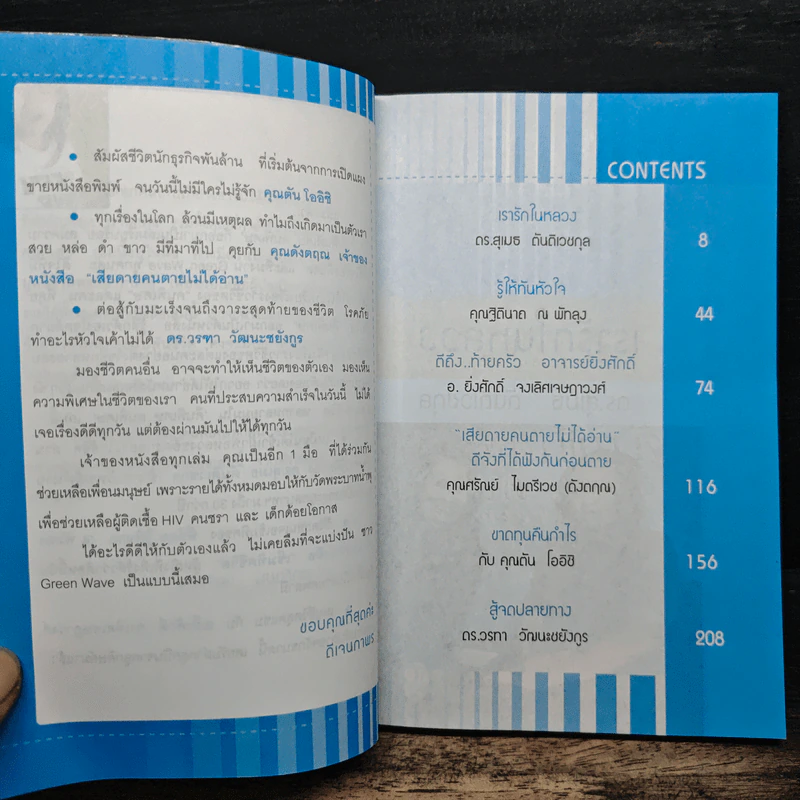 ● สัมผัสชีวิตนักธุรกิจพันล้าน ที่เริ่มต้นจากการเปิดแผง
ขายหนังสือพิมพ์ จนวันนี้ไม่มีใครไม่รู้จัก คุณตัน โออิชิ
● ทุกเรื่องในโลก ล้วนมีเหตุผล ทำไมถึงเกิดมาเป็นตัวเรา
สวย หล่อ ดำ ขาว มีที่มาที่ไป คุยกับ คุณดังตฤณ เจ้าของ
หนังสือ "เสียดายคนตายไม่ได้อ่าน"
● ต่อสู้กับมะเร็งจนถึงวาระสุดท้ายของชีวิต โรคภัย
ทำอะไรหัวใจเค้าไม่ได้ ดร.วรฑา วัฒนะชยังกูร
มองชีวิตคนอื่น อาจจะทำให้เห็นชีวิตของตัวเอง มองเห็น
ความพิเศษในชีวิตของเรา คนที่ประสบความสำเร็จในวันนี้ ไม่ได้
เจอเรื่องดีดีทุกวัน แต่ต้องผ่านมันไปให้ได้ทุกวัน
เจ้าของหนังสือทุกเล่ม คุณเป็นอีก 1 มือ ที่ได้ร่วมกัน
ช่วยเหลือเพื่อนมนุษย์ เพราะรายได้ทั้งหมดมอบให้กับวัดพระบาทน้ำพุ
เพื่อช่วยเหลือผู้ติดเชื้อ HIV คนชรา และ เด็กด้อยโอกาส
ได้อะไรดีดีให้กับตัวเองแล้ว ไม่เคยลืมที่จะแบ่งปัน ชาว
Green Wave เป็นแบบนี้เสมอ
ขอบคุณที่สุดค่ะ
ดีเจนภาพร
CONTENTS
เรารักในหลวง
ดร.สุเมธ ตันติเวชกุล
8
รู้ให้ทันหัวใจ
คุณฐิตินาถ ณ พัทลุง
44
ดีถึง..ท้ายครัว อาจารย์ยิ่งศักดิ์
อ. ยิ่งศักดิ์ จงเลิศเจษฎาวงศ์
74
"เสียดายคนตายไม่ได้อ่าน"
ดีจังที่ได้ฟังกันก่อนตาย
คุณศรัณย์ ไมตรีเวช (ดังตฤณ)
116
ขาดทุนคืนกำไร
กับ คุณตัน โออิชิ
156
สู้จุดปลายทาง
ดร.วรฑา วัฒนะชยังกูร
208